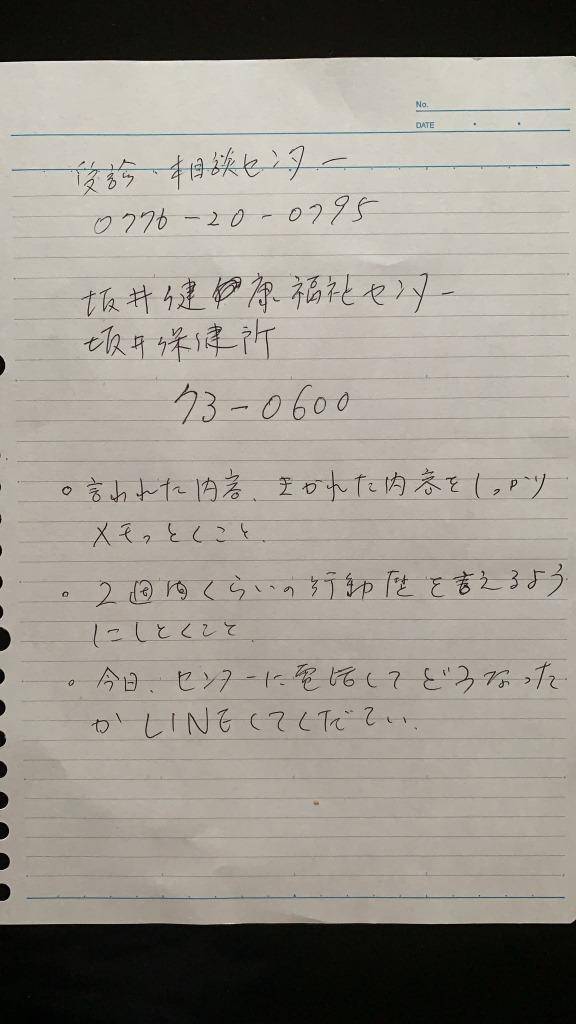 No.
DATE
受診・相談センター
0776-20-0795
坂井健康福祉センター
坂井保健所
73-0600
○言われた内容、きかれた内容をしっかり
メモっとくこと。
○2週間くらいの行動歴を言えるよう
にしとくこと。
○今日、センターに電話してどうなった
かLINEしてください。